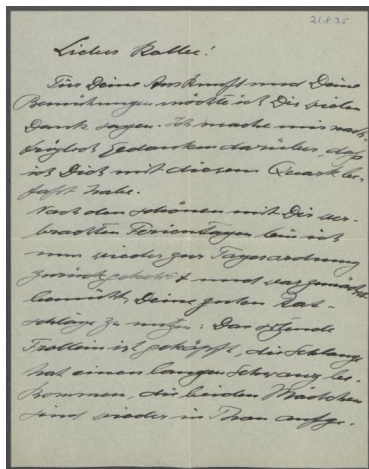 21.8.35
Lieber Kolle!
Für Deine Auskunft und Deine
Bemühungen möchte ich Dir vielen
Dank sagen. Ich mache mir nach-
träglich Gedanken darüber, daß
ich Dich mit diesem Quark be-
faßt habe.
Nach den schönen mit Dir ver-
brachten Ferientagen bin ich
nun wieder zur Tagesordnung
zurückgekehrt und
bemüht, Deine guten Rat-
schläge zu nutzen: Das sitzende
Fräulein ist geköpft, die Schlange
hat einen langen Schwanz be-
kommen, die beiden Mädchen
sind wieder in Thon aufge-